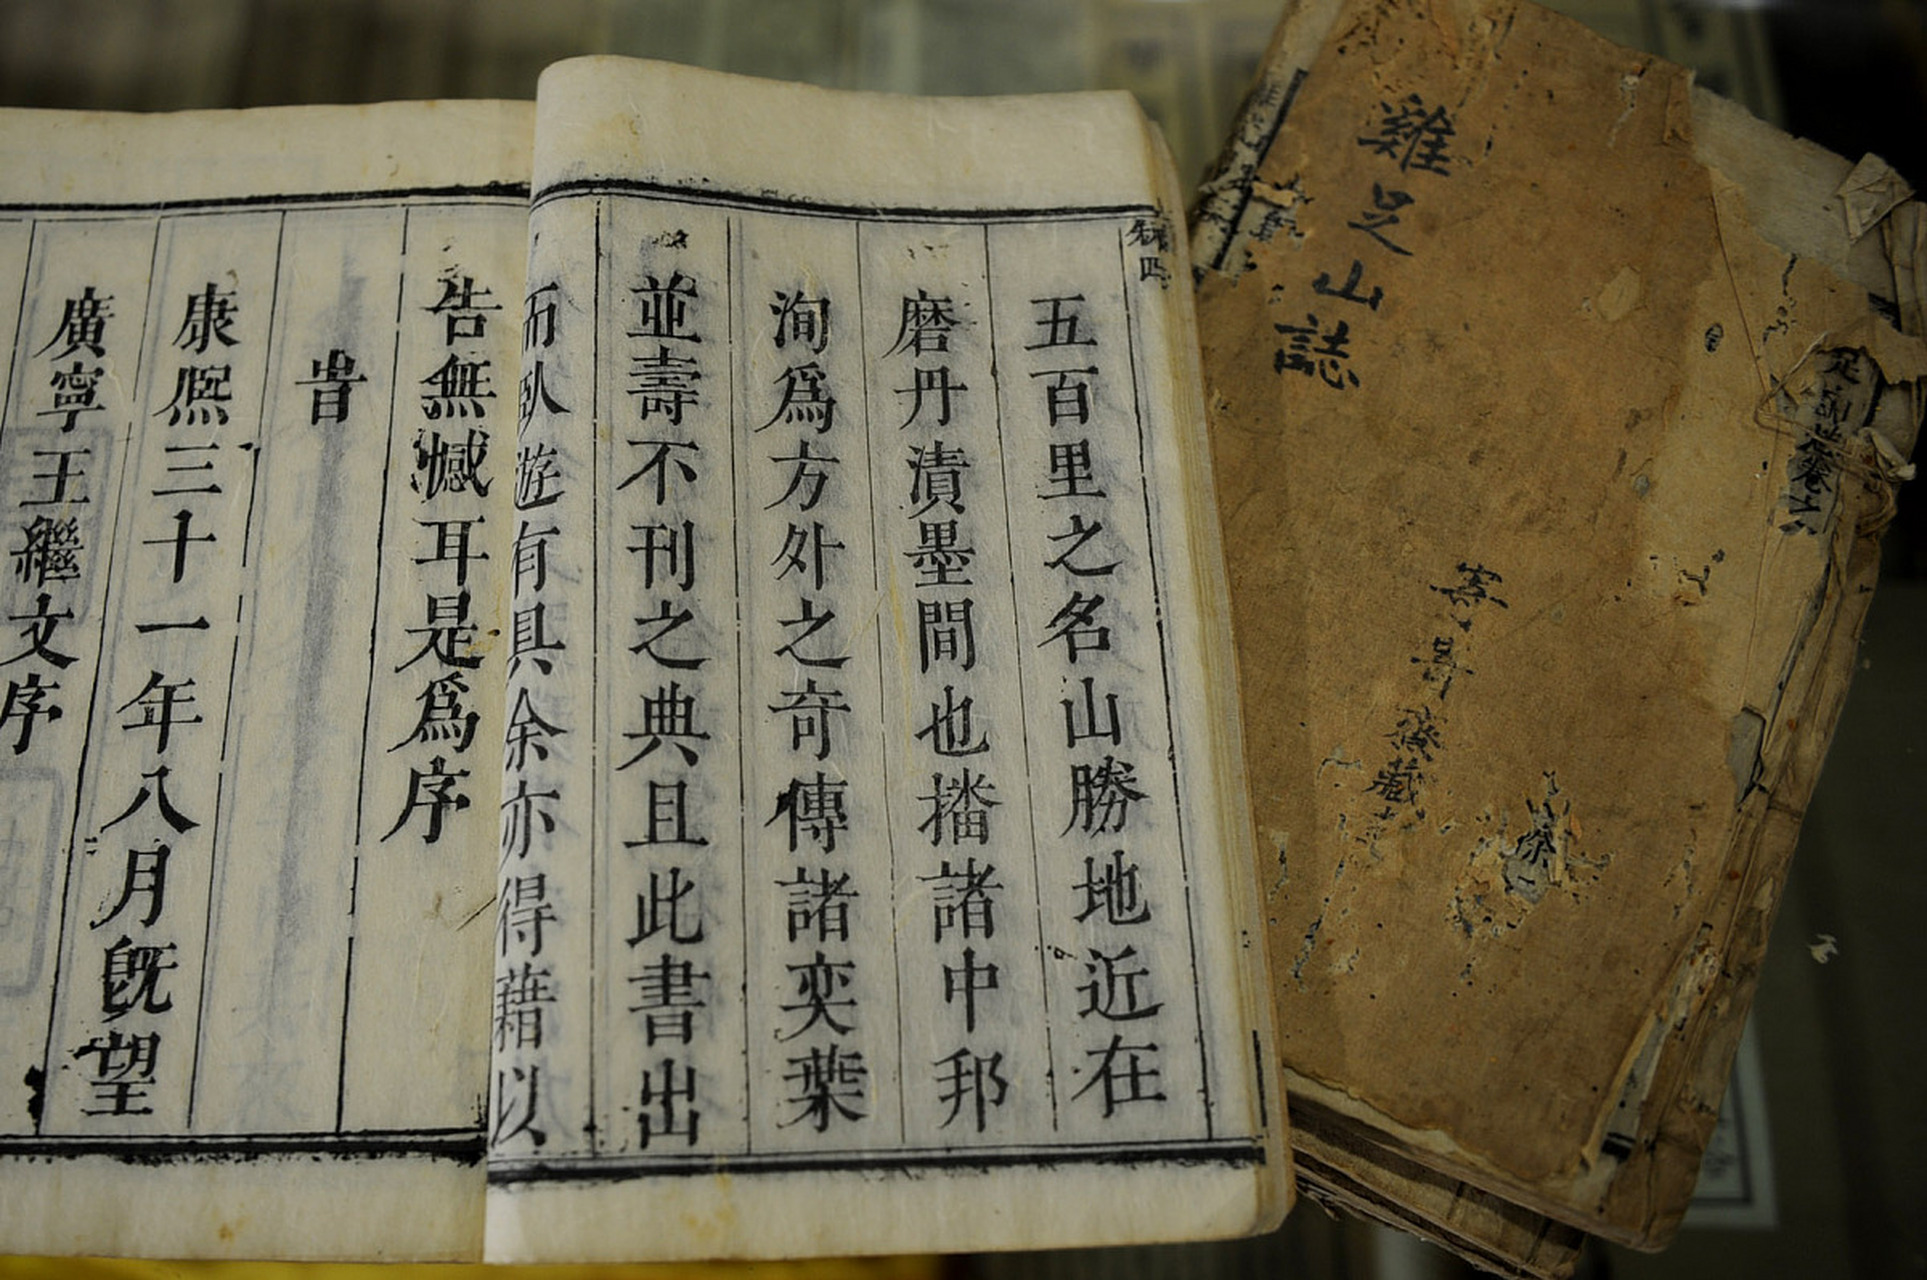 五百里之名山勝地近在
磨丹漬墨間也播諸中邦
洵爲方外之奇傳諸奕葉
並壽不刊之典且此書出
而臥遊有具余亦得藉以
告無憾耳是爲序
旹
康熙三十一年八月旣望
廣寧王繼文序
雞足山誌
藏
足山誌卷之六